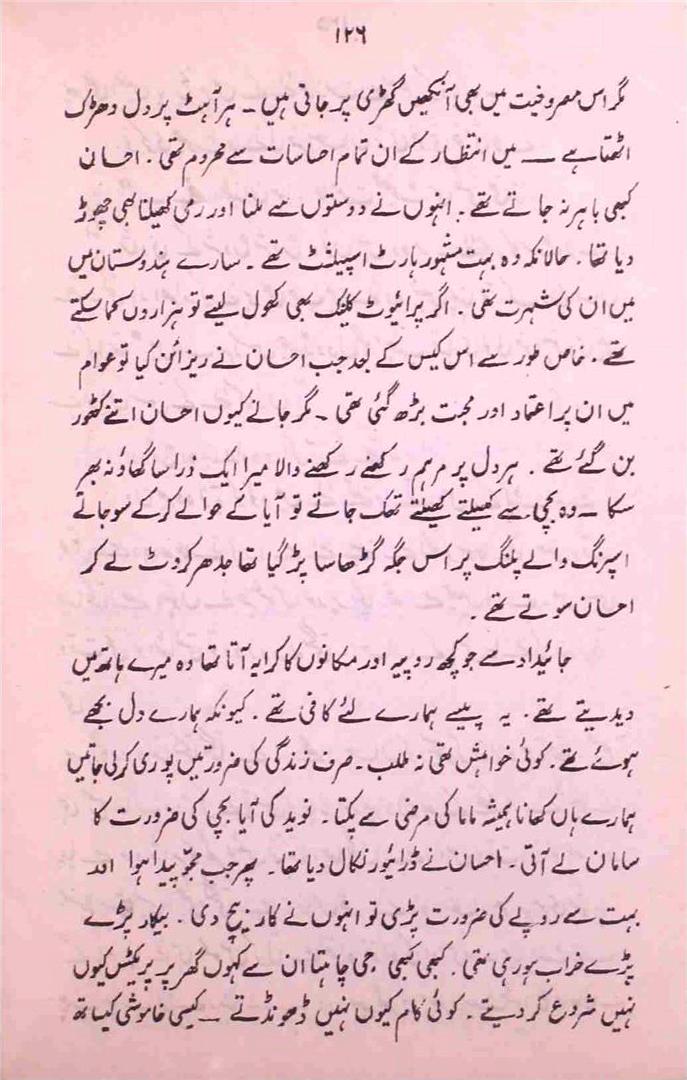 ۱۲۶
مگر اس مصروفیت میں بھی آنکھیں گھڑی پر جاتی ہیں ۔ ہر آہٹ پر دل دھڑک
اٹھتا ہے ـــ میں انتظار کے ان تمام احساسات سے محروم تھی ۔ احسان
کبھی باہر نہ جاتے تھے ۔ انہوں نے دوستوں سے ملنا اور رمی کھیلنا بھی چھوڑ
دیا تھا ۔ حالانکہ وہ بہت مشہور ہارٹ اسپیلشٹ تھے ۔ سارے ہندوستان میں
میں ان کی شہرت تھی ۔ اگر پرائیوٹ کلینک بھی کھول لیتے تو ہزاروں کما سکتے
تھے ۔ خاص طور سے اس کیس کے بعد جب احسان نے ریزائن کیا تو عوام
میں ان پر اعتماد اور محبت بڑھ گئی تھی ۔ مگر جانے کیوں احسان اتنے کٹھور
بن گئے تھے ۔ ہر دل پر مرہم رکھنے رکھنے والا میرا ایک ذرا سا گھاؤ نہ بھر
سکا ــ وہ بچی سے کھیلتے کھیلتے تھک جاتے تو آیا کے حوالے کر کے سو جاتے
اسپرنگ والے پلنگ پر اس جگہ گڑھا سا پڑ گیا تھا جدھر کروٹ لے کر
احسان سوتے تھے ۔
جائیداد سے جو کچھ روپیہ اور مکانوں کا کرایہ آتا تھا وہ میرے ہاتھ میں
دیدیتے تھے ۔ یہ پیسے ہمارے لئے کافی تھے ۔ کیونکہ ہمارے دل بجھے
ہوئے تھے ۔ کوئی خواہش تھی نہ طلب ۔ صرف زندگی کی ضرورتیں پوری کر لی جاتیں
ہمارے ہاں کھانا ہمیشہ ماما کی مرضی سے پکتا ۔ نوید کی آیا بچی کی ضرورت کا
سامان لے آتی ۔ احسان نے ڈرائیور نکال دیا تھا ۔ پھر جب مجّو پیدا ہوا اور
بہت سے روپے کی ضرورت پڑی تو انہوں نے کار بیچ دی ۔ بیکار پڑے
پڑے خراب ہو رہی تھی ۔ کبھی کبھی جی چاہتا ان سے کہوں گھر پر پریکٹس کیوں
نہیں شروع کر دیتے ۔ کوئی کام کیوں نہیں ڈھونڈتے ــ کیسی خاموشی کیساتھ